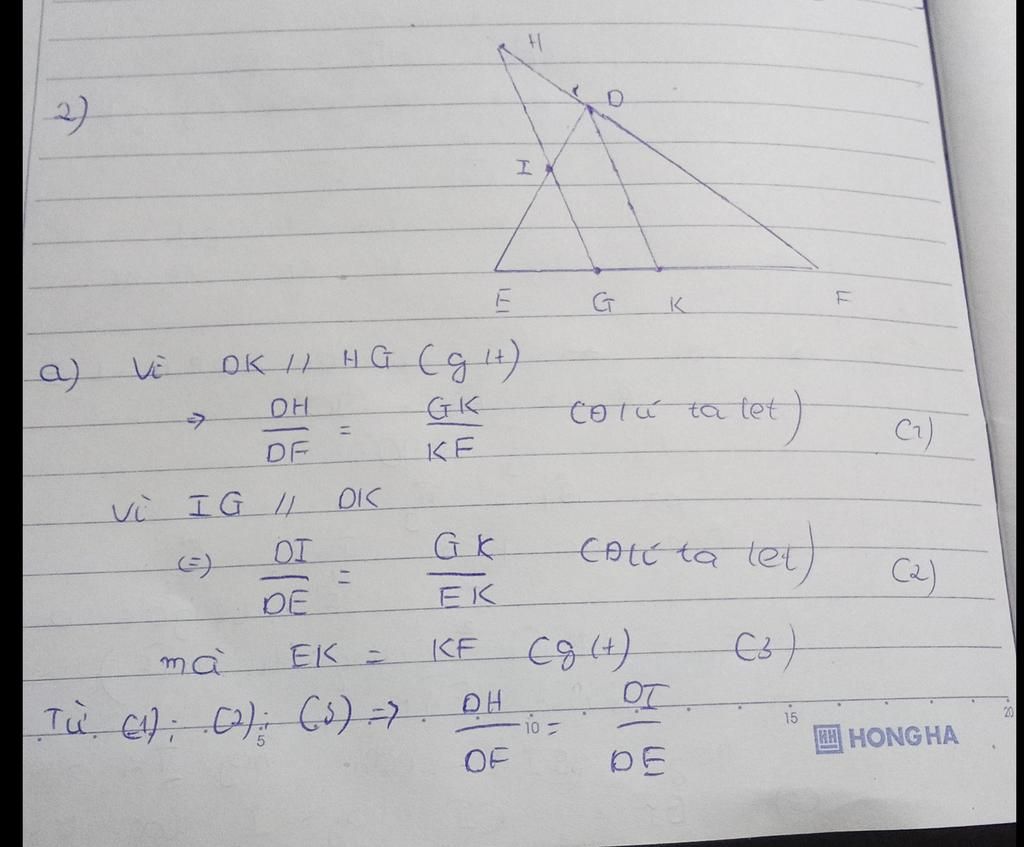 2)
H
D
I
E G K F
a) Vì DK // HG (glt)
=> DH/DF = GK/KF (Đlí ta let) (1)
Vì IG // DK
(=) DI/DE = GK/EK (Đlí ta let) (2)
mà EK = KF (glt) (3)
Từ (1); (2); (3) => DH/DF = DI/DE
5 10 15 20
HH HONG HA